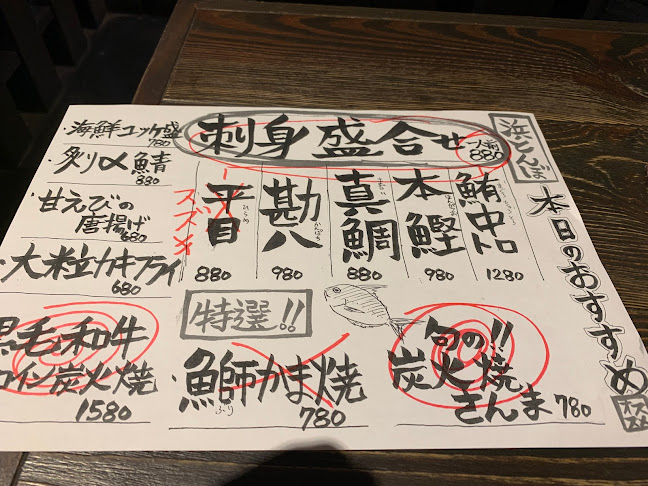 浜とんぼ
本日のおすすめ
オススメ
刺身盛合せ
一人前
880
鮪中トロ
1280
本鰹
980
真鯛
880
勘八
かんぱち
980
平目
ひらめ
スズキ
880
・海鮮ユッケ盛
780
・炙り〆鯖
880
・甘えびの
唐揚げ
680
・大粒カキフライ
680
特選!!
黒毛和牛
ロイン炭火焼
1580
・鰤かま焼
ぶり
780
旬の!!
炭火焼
さんま780